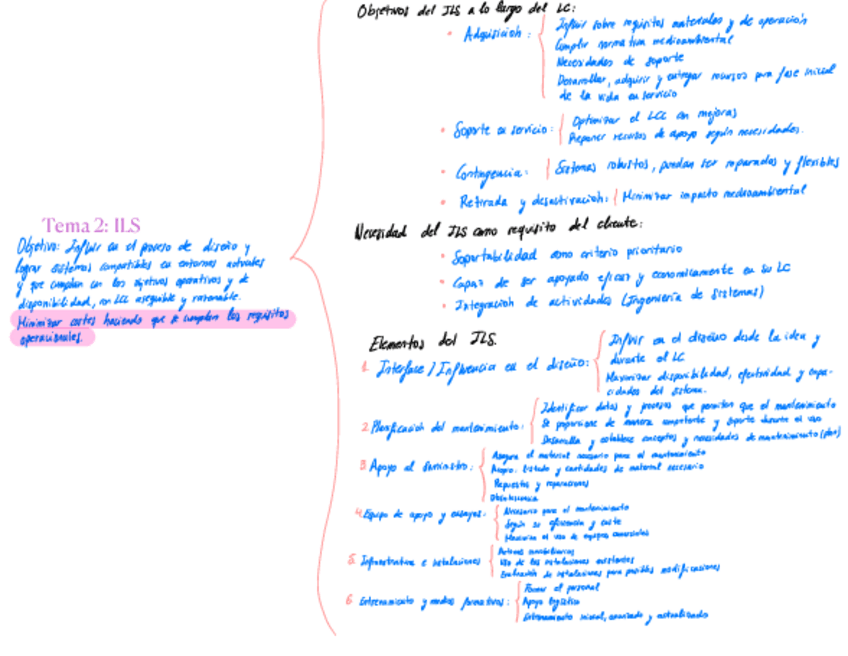 Tema 2: ILS
Objetivo: Influir en el proceso de diseño y
lograr sistemas compatibles en entornos actuales
y que cumplan con los objetivos operativos y de
disponibilidad, con LCC asequible y razonable.
Minimizar costes haciendo que se cumplan los requisitos
operacionales.
Objetivos del ILS a lo largo del LC:
• Adquisición:
Influir sobre requisitos materiales y de operación
Cumplir normativa medioambiental
Necesidades de soporte
Desarrollar, adquirir y entregar recursos para fase inicial
de la vida en servicio
• Soporte en servicio:
Optimizar el LCC con mejoras
Reponer recursos de apoyo según necesidades.
• Contingencia:
Sistemas robustos, puedan ser reparados y flexibles
• Retirada y desactivación:
Minimizar impacto medioambiental
Necesidad del ILS como requisito del cliente:
• Soportabilidad como criterio prioritario
• Capaz de ser apoyado eficaz y economicamente en su LC
• Integración de actividades (Ingeniería de Sistemas)
Elementos del ILS.
1. Interface / Influencia en el diseño:
Influir en el diseño desde la idea y
durante el LC
Maximizar disponibilidad, efectividad y capa-
cidades del sistema.
2. Planificación del mantenimiento:
Identificar datos y procesos que permiten que el mantenimiento
se proporcione de manera competente y soporte durante el uso
Desarrolla y establece conceptos y necesidades de mantenimiento (plan)
3 Apoyo al suministro:
Asegura el material necesario para el mantenimiento
listado y cantidades de material necesario
Repuestos y reparaciones
Obsolescencia
4. Equipo de apoyo y ensayos:
Necesario para el mantenimiento
Según su eficiencia y coste
el uso de equipos comerciales
5. Infraestructura e instalaciones
Activos inmobiliarios
Uso de las instalaciones existentes
Evaluación de instalaciones para posibles modificaciones
6 Entrenamiento y medios formativos:
Formar el personal
Apoyo logístico
Entrenamiento inicial, avanzado y actualizado